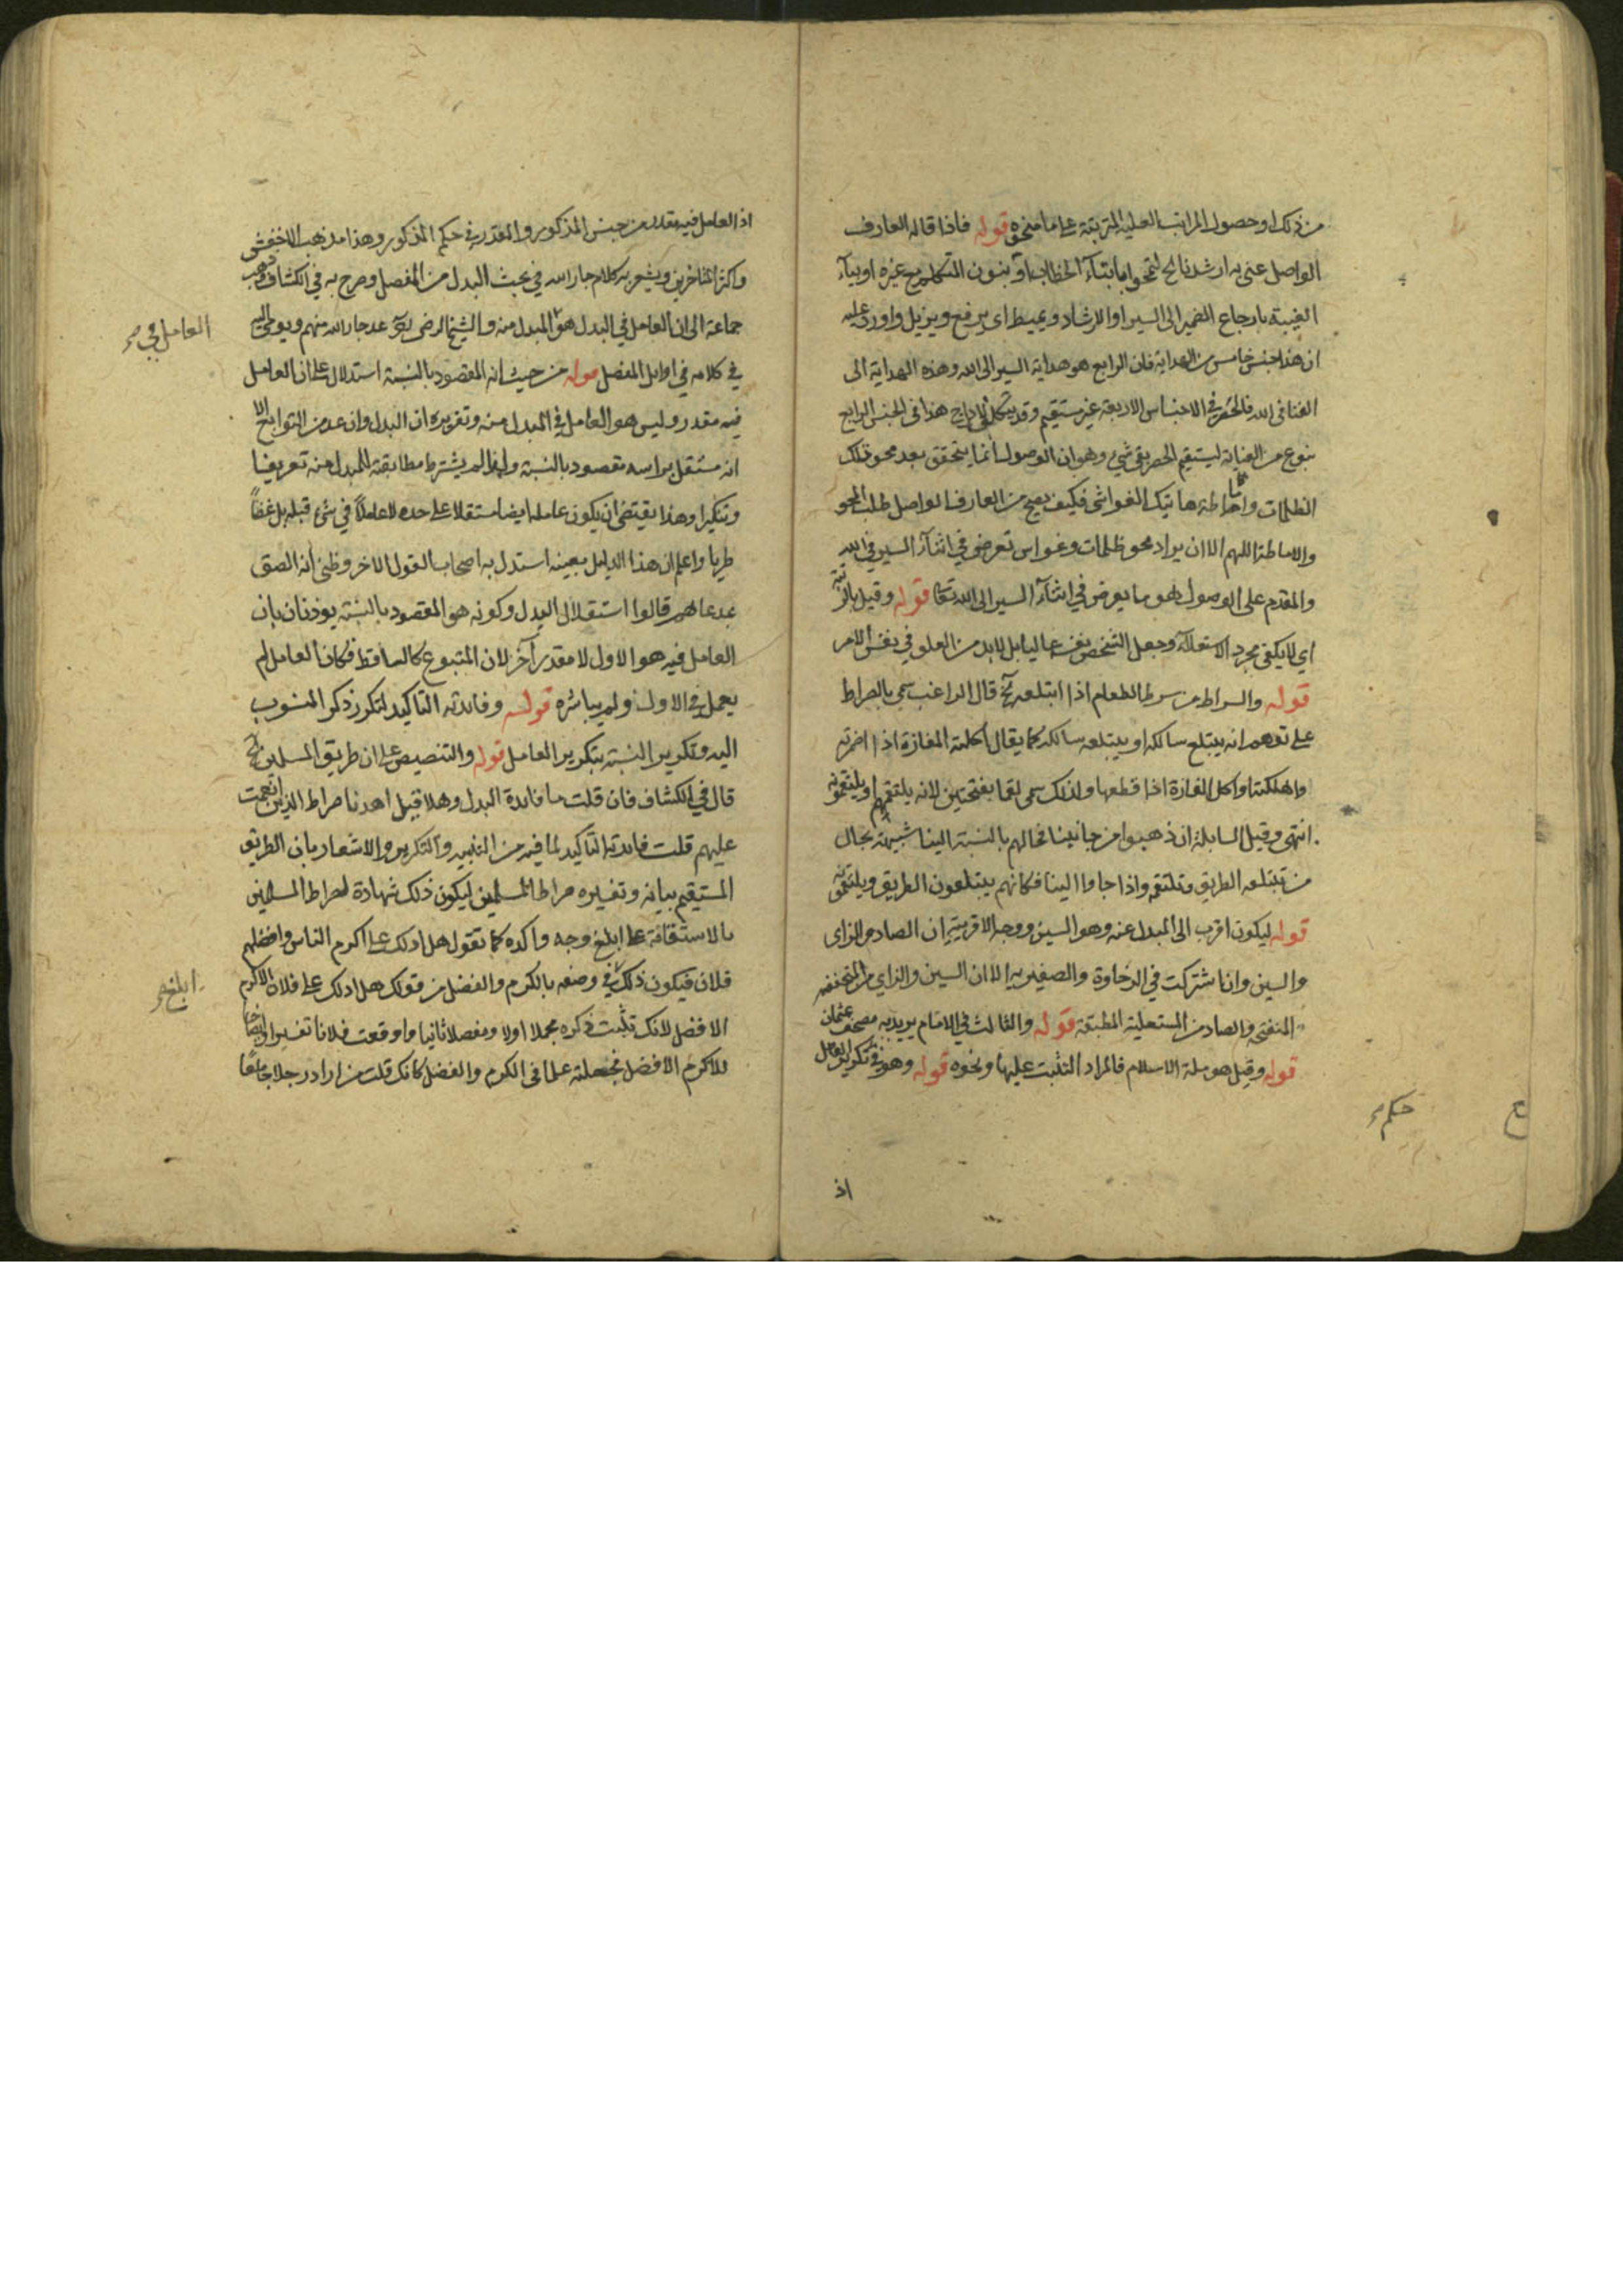 من ذلك او حصول المراتب العلية المترتبة على ما منحوه قوله فاذا قاله العارف
الواصل عنى به ارشدنا الخ لتمحو اما بتاء الخطاب او بنون المتكلم مع غيره او بياء
الغيبة بارجاع الضمير الى السير او الارشاد ويميط اي يرفع ويزيل واورد عليه
ان هذا جنس خامس من الهداية فان الرابع هو هداية السير الى الله وهذه الهداية الى
الفنا في الله فالحصر في الاجناس الاربعة غير مستقيم وقد يتكلف لادراج هذا في الجنس الرابع
بنوع من العناية ليستقيم الحصر بقي شيء وهو ان الوصول انما يتحقق بعد محو تلك
الظلمات واماطة هاتيك الغواشي فكيف يصح من العارف الواصل طلب المحو
والاماطة اللهم الا ان يراد محو ظلمات وغواش تعرض في اثناء السير في الله
والمقدم على الوصول هو ما يعرض في اثناء السير الى الله تعا قوله وقيل بالرتبة
اي لا يكفي مجرد الاستعلاء وجعل الشخص نفسه عاليا بل لابد من العلو في نفس الامر
قوله والسراط من سرط الطعام اذا ابتلعه الخ قال الراغب سمي بالصراط
على توهم انه يبتلع سالكه او يبتلعه سالكه كما يقال اكلته المفازة اذا اضمرته
واهلكته واكل المفازة اذا قطعها ولذلك سمى لقما بفتحتين لانه يلتقمهم او يلتقمونه
انتهى وقيل السابلة ان ذهبوا من جانبنا فحالهم بالنسبة الينا شبيهة بحال
من تبتلعه الطريق وتلتقمه واذا جاوا الينا فكانهم يبتلعون الطريق ويلتقمونه
قوله ليكون اقرب الى المبدل عنه وهو السين ووجه الاقربية ان الصاد والزاى
والسين وان اشتركت في الرخاوة والصفير الا ان السين والزاي من المنخفضة
المنفتحة والصاد من المستعلية المطبقة قوله والثالث في الامام يريد به مصحف عثمان
قوله وقيل هو ملة الاسلام فالمراد التثبت عليها ونحوه قوله وهو في تكرير العامل
حكم
ع
اذ
اذ العامل فيه مقدر من جنس المذكور والمقدر في حكم المذكور وهذا مذهب الاخفش
واكثر المتاخرين ويشعر به كلام جار الله في بحث البدل من المفصل وصرح به في الكشاف وذهب
جماعة الى ان العامل في البدل هو المبدل منه والشيخ الرضى عد جار الله منهم ويومي اليه
العامل في
في كلامه في اوايل المفصل قوله من حيث انه المقصود بالنسبة استدلال على ان العامل
فيه مقدر وليس هو العامل في المبدل منه وتقريره ان البدل وان عد من التوابع الا
انه مستقل براسه مقصود بالنسبة ولهذا لم يشترط مطابقة المبدل منه تعريفا
وتنكيرا وهذا يقتضي ان يكون عامله ايضا مستقلا على حده لا عاملا في شيء قبله بل غضا
طريا واعلم ان هذا الدليل بعينه استدل به اصحاب القول الاخر وظني انه الصق
بمدعاهم قالوا استقلال البدل وكونه هو المقصود بالنسبة يوذنان بان
العامل فيه هو الاول لا مقدر آخر لان المتبوع كالساقط فكان العامل لم
يعمل في الاول ولم يباشره قوله وفائدته التاكيد لتكرر ذكر المنسوب
اليه وتكرير النسبة بتكرير العامل قوله والتنصيص على ان طريق المسلمين الخ
قال في الكشاف فان قلت ما فايدة البدل وهلا قيل اهدنا صراط الذين انعمت
عليهم قلت فايدته التاكيد لما فيه من التثنية والتكرير والاشعار بان الطريق
المستقيم بيانه وتفسيره صراط المسلمين ليكون ذلك شهادة لصراط المسلمين
بالاستقامة على ابلغ وجه واكده كما تقول هل ادلك على اكرم الناس وافضلهم
فلان فيكون ذلك في وصفه بالكرم والفضل من قولك هل ادلك على فلان الاكرم
ابلغ
الافضل لانك تثبت ذكره مجملا اولا ومفصلا ثانيا واوقعت فلانا تفسيرا وايضاحا
للاكرم الافضل فجعلته علما في الكرم والفضل كانك قلت من اراد رجلا جامعا